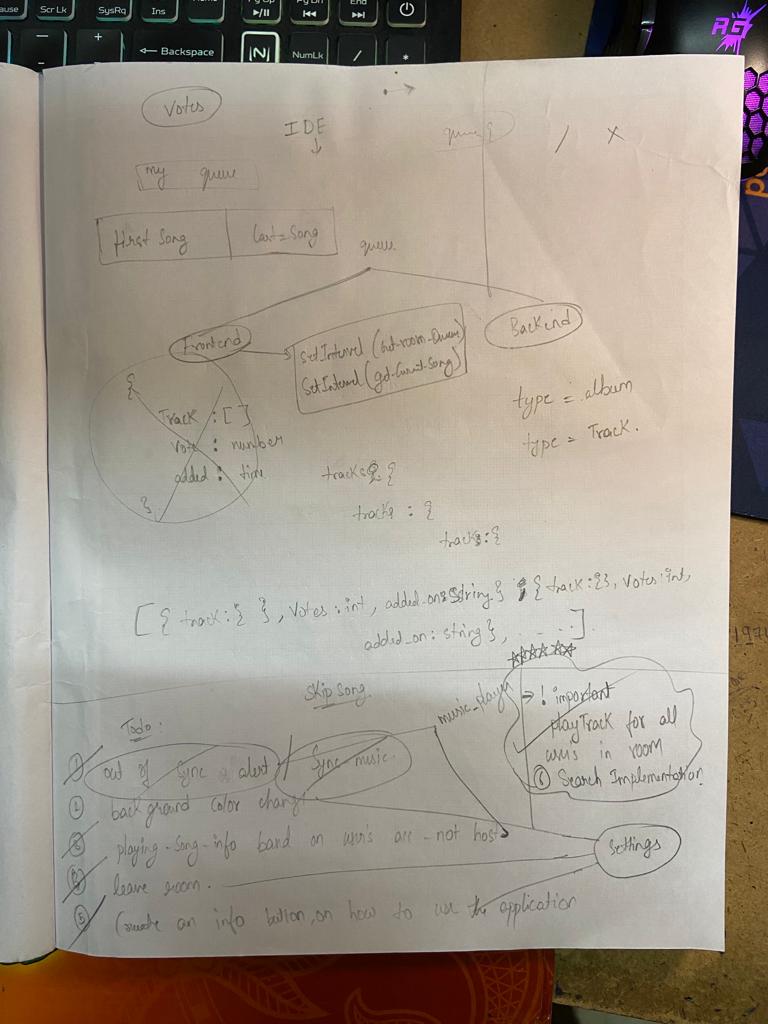 Scr Lk
SysRq
Ins
Pg Up
Pg Dn
End
Backspace
NumLk
/
*
Votes
IDE
/ x
my queue
First Song
Last=Song
queue
Frontend
Backend
SetInterval (
SetInterval (get-Current-Song)
{
Track : [ ]
Vote : number
added : time
}
type = album
type = Track.
tracks {
tracks : {
tracks : {
[ { track : { }, Votes : int, added_on : String } , { track : { }, Votes : int,
added_on : string }, - - - - ].
Skip Song
music_player
→ ! important
playTrack for all
users in room
⑥ Search Implementation
Todo :
① out of Sync alert / Sync-music.
② background color change.
③ playing-song-info band on user's acc - not host
④ leave room.
Settings
⑤ Create an info button, on how to use the application
197